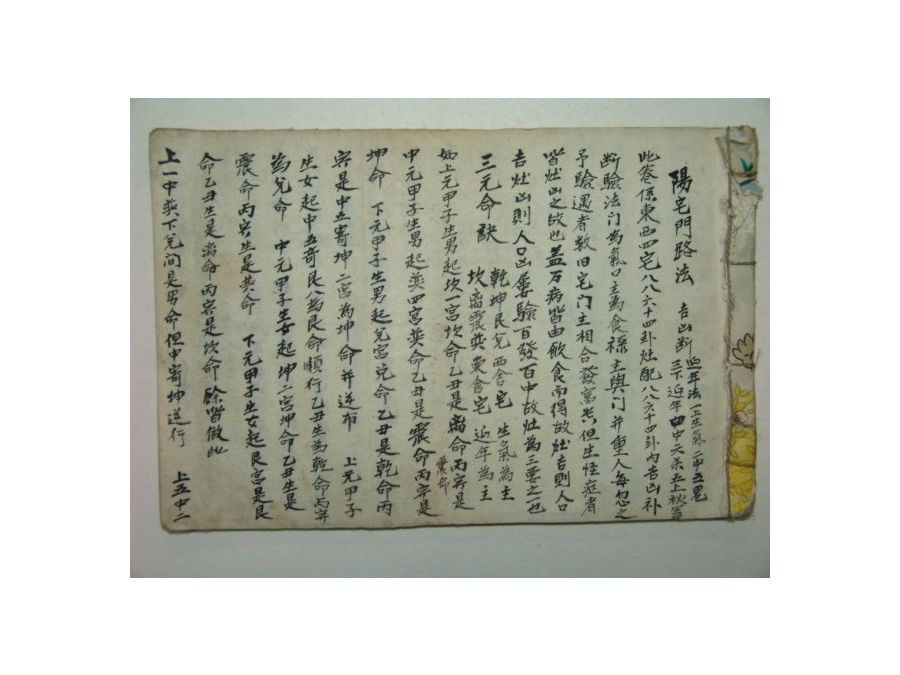 陽宅門路法 吉凶断
近年法一上生氣二中五鬼
三下近年四中天杀五上
此卷係東西四宅八八六十四卦灶配八八六十四卦内吉凶补
断驗法门為氣口主為食禄主與门并重人每忽之
予驗遇者数旧宅门主相合發富贵但生怪症者
皆灶凶之故也盖万病皆由飲食而得故灶吉則人口
吉灶凶則人口凶屡驗百發百中故灶為三要之一也
三元命訣 乾坤艮兌西舍宅 生氣為主
坎离震巽東舍宅 近年為主
如上元甲子生男起坎一宫坎命乙丑是离命丙寅是
震命
中元甲子生男起巽四宫巽命乙丑是震命丙寅是
坤命 下元甲子生男起兌宫兌命乙丑是乾命丙
寅是中五寄坤二宫為坤命并逆布 上元甲子
生女起中五寄艮八為艮命順行乙丑生為乾命丙寅
為兌命 中元甲子生女起坤二宫坤命乙丑生是
震命丙寅生是巽命 下元甲子生女起艮宫是艮
命乙丑生是离命丙寅是坎命 餘皆倣此
上一中巽下兌间是男命但中寄坤逆行 上五中二